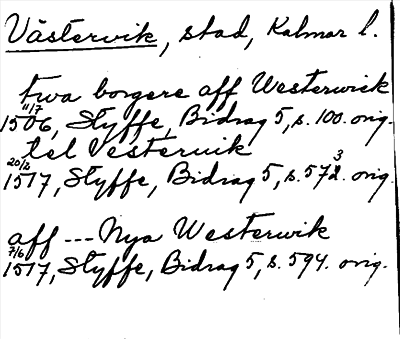 Västervik, stad, Kalmar l.
twa borgere aff Westerwiek
11/7 1506, Styffe, Bidrag 5, s. 100. orig.
tel Vesteruik
20/2 1517, Styffe, Bidrag 5, s. 573. orig.
aff --- Nya Westerwik
7/6 1517, Styffe, Bidrag 5, s. 594. orig.